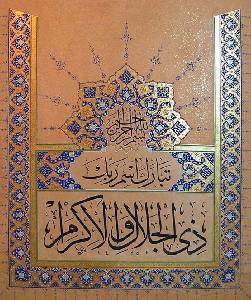 بسم الله الرحمن الرحيم
تبارك اسم ربك
ذى الجلال و الاكرام